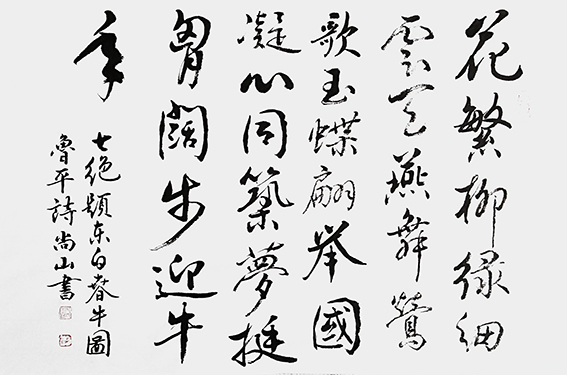 花繁柳緑細
雲天燕舞鶯
歌玉蝶翩举國
凝心同築夢挺
胷闊步迎牛
年
七绝題东白春牛圖
魯平詩尚山書